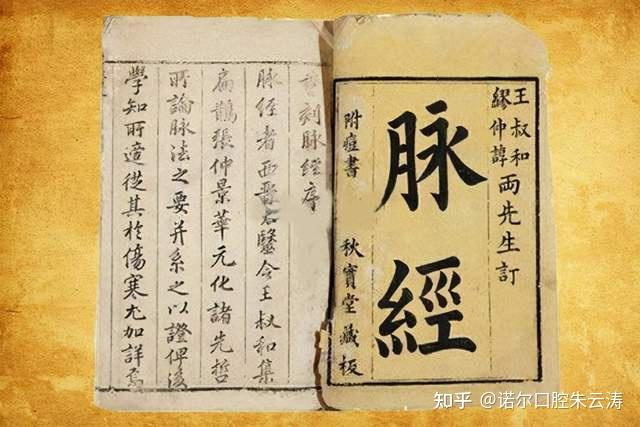 王叔和
繆仲諄
两先生訂
脉經
附痘書
秋寶堂藏板
重刻脉經序
脉經者西晋太醫令王叔和集
扁鵲張仲景華元化諸先哲
所論脉法之要并系之以證俾後
學知所適從其於傷寒尤加詳焉
知乎 @诺尔口腔朱云涛